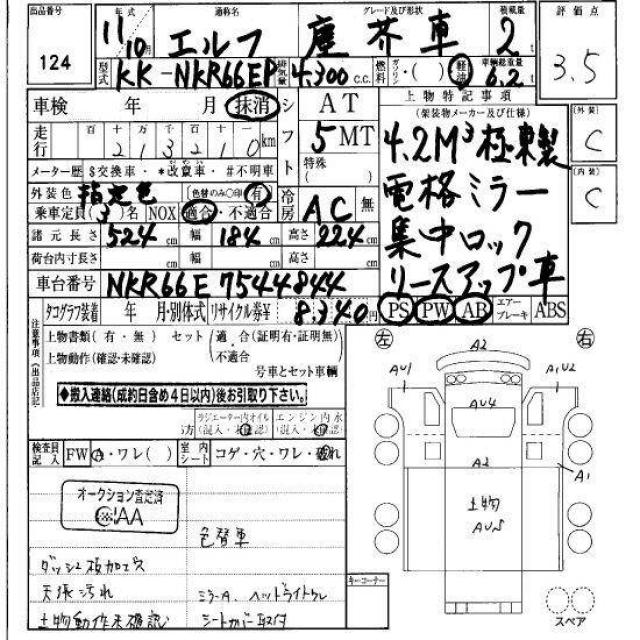 出品番号
124
年式
11/10月
通称名
エルフ
グレード及び形状
塵芥車
積載量
2 t
評価点
3.5
型式
KK-NKR66EP
排気量
4,300 c.c.
燃料
ガソリン・( )・軽油
車輌総重量
6.2 t
車検 年 月 抹消
シフト
AT
5 MT
特殊
( )
上物特記事項
(架装物メーカー及び仕様)
4.2M³極東製
電格ミラー
集中ロック
リースアップ車
(外装)
C
(内装)
C
走行
百 十 万 千 百 十 一
2 1 3 2 1 0 km
メーター歴 $交換車・*改竄車・#不明車
外装色 指定色 (色替のみ○印) 有
乗車定員(3)名 NOX 適合・不適合
冷房 AC 無
諸元長さ 524 cm 幅 184 cm 高さ 224 cm
荷台内寸長さ cm 幅 cm 高さ cm
車台番号 NKR66E 7544844
タコグラフ装着 年 月・別体式 リサイクル券¥ 8,340円
PS PW AB エアーブレーキ ABS
注意事項(出品店記
上物書類(有・無) セット 適合(証明有・証明無)
上物動作(確認・未確認) 不適合
号車とセット車輌
◆搬入連絡(成約日含め4日以内)後お引取り下さい。
ラジエーター内オイル エンジン内水
(混入・未確認) (混入・未確認)
検査員記入 FW A・ワレ( ) 室内シート コゲ・穴・ワレ・破れ
オークション査定済
CIAA
色替車
ダッシュ板加工アス
天張汚れ
ミラーA、ヘッドライトワレ
上物動作未確認
シートカバー取付
キーコーナー
左
右
A2
AU1
A1U2
AU4
A2
A1
上物
AU5
スペア